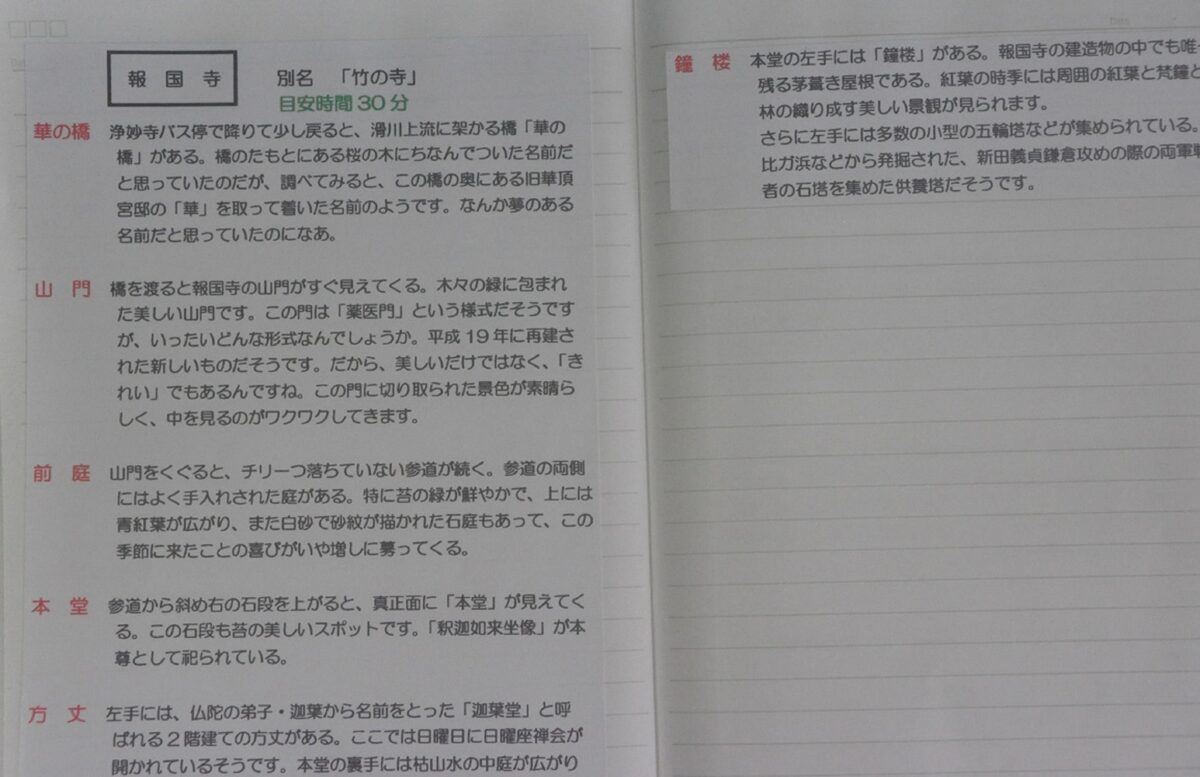 報国寺 別名 「竹の寺」
目安時間30分
華の橋 浄妙寺バス停で降りて少し戻ると、滑川上流に架かる橋「華の
橋」がある。橋のたもとにある桜の木にちなんでついた名前だ
と思っていたのだが、調べてみると、この橋の奥にある旧華頂
宮邸の「華」を取って着いた名前のようです。なんか夢のある
名前だと思っていたのになあ。
山門 橋を渡ると報国寺の山門がすぐ見えてくる。木々の緑に包まれ
た美しい山門です。この門は「薬医門」という様式だそうです
が、いったいどんな形式なんでしょうか。平成19年に再建さ
れた新しいものだそうです。だから、美しいだけではなく、「き
れい」でもあるんですね。この門に切り取られた景色が素晴ら
しく、中を見るのがワクワクしてきます。
前庭 山門をくぐると、チリ一つ落ちていない参道が続く。参道の両側
にはよく手入れされた庭がある。特に苔の緑が鮮やかで、上には
青紅葉が広がり、また白砂で砂紋が描かれた石庭もあって、この
季節に来たことの喜びがいや増しに募ってくる。
本堂 参道から斜め右の石段を上がると、真正面に「本堂」が見えてく
る。この石段も苔の美しいスポットです。「釈迦如来坐像」が本
尊として祀られている。
方丈 左手には、仏陀の弟子・迦葉から名前をとった「迦葉堂」と呼
ばれる2階建ての方丈がある。ここでは日曜日に日曜座禅会が
開かれているそうです。本堂の裏手には枯山水の中庭が広がり
鐘楼 本堂の左手には「鐘楼」がある。報国寺の建造物の中でも唯一
残る茅葺き屋根である。紅葉の時季には周囲の紅葉と梵鐘と
林の織り成す美しい景観が見られます。
さらに左手には多数の小型の五輪塔などが集められている。
比ガ浜などから発掘された、新田義貞鎌倉攻めの際の両軍戦
者の石塔を集めた供養塔だそうです。